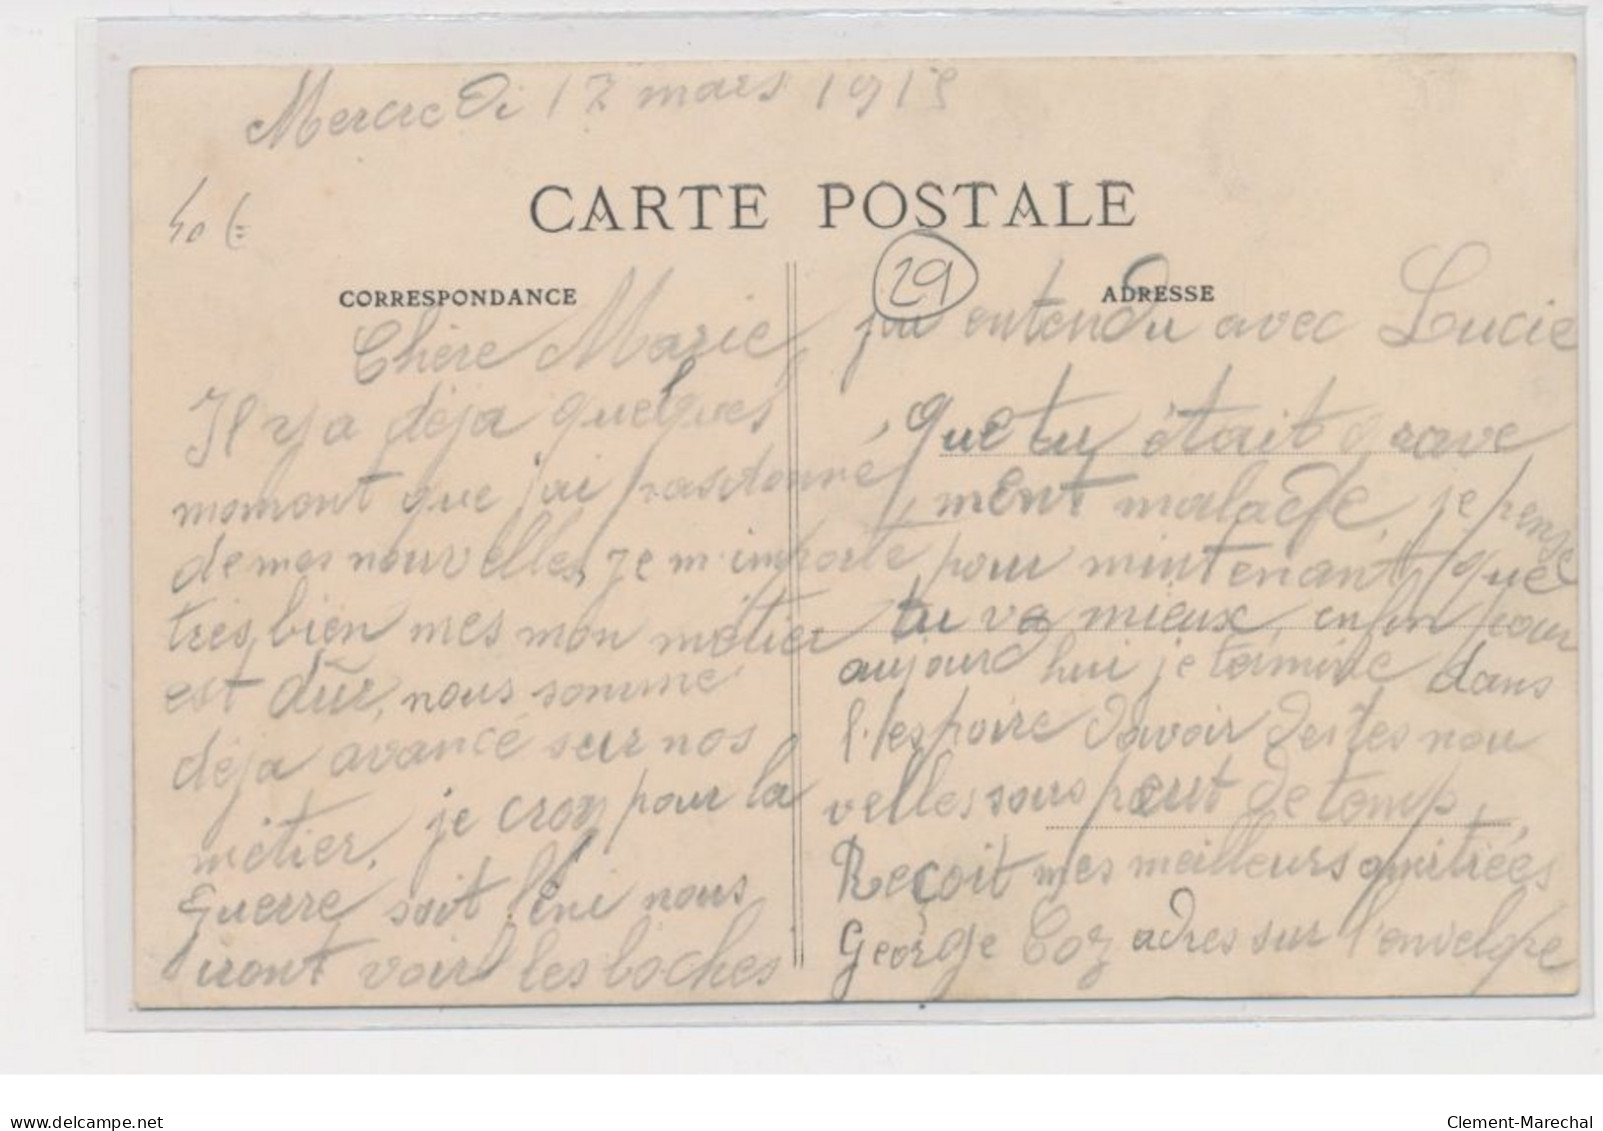 Mercredi 17 mars 1915
40 €
CARTE POSTALE
29
CORRESPONDANCE
ADRESSE
Chère Marie,
Il y a déja quelques
momont que j'ai pas donné
de mes nouvelles, je m'importe
très bien mes mon métier
est dûr, nous somme
déja avancé sur nos
métier, je croy pour la
guerre soit fini nous
iront voir les boches
j'ai entendu avec Lucie
que tu était grave
ment malade, je pense
pour mintenant que
tu va mieux, enfin pour
aujourd hui je termine dans
l'lespoire d'avoir des tes nou
velles sous peut de temp,
Reçoit mes meilleurs amitiées
George Coz adres sur l'envelope
my-west-indies.com
Clement-Marechal